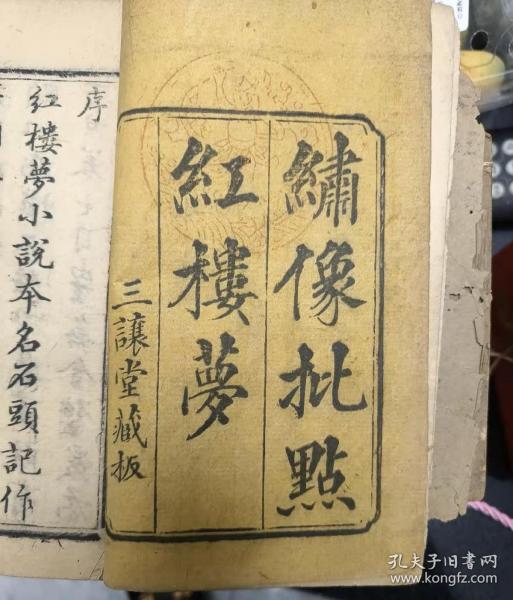 繡像批點
紅樓夢
三讓堂藏板
序
紅樓夢小說本名石頭記作
孔夫子旧书网
www.kongfz.com